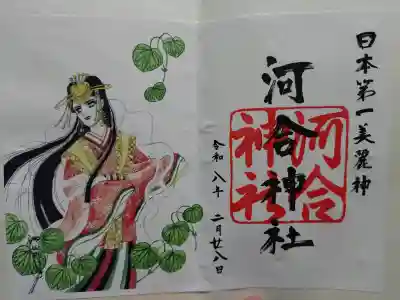 日本第一美麗神
河合神社
河合神社
令和八年 二月廿八日